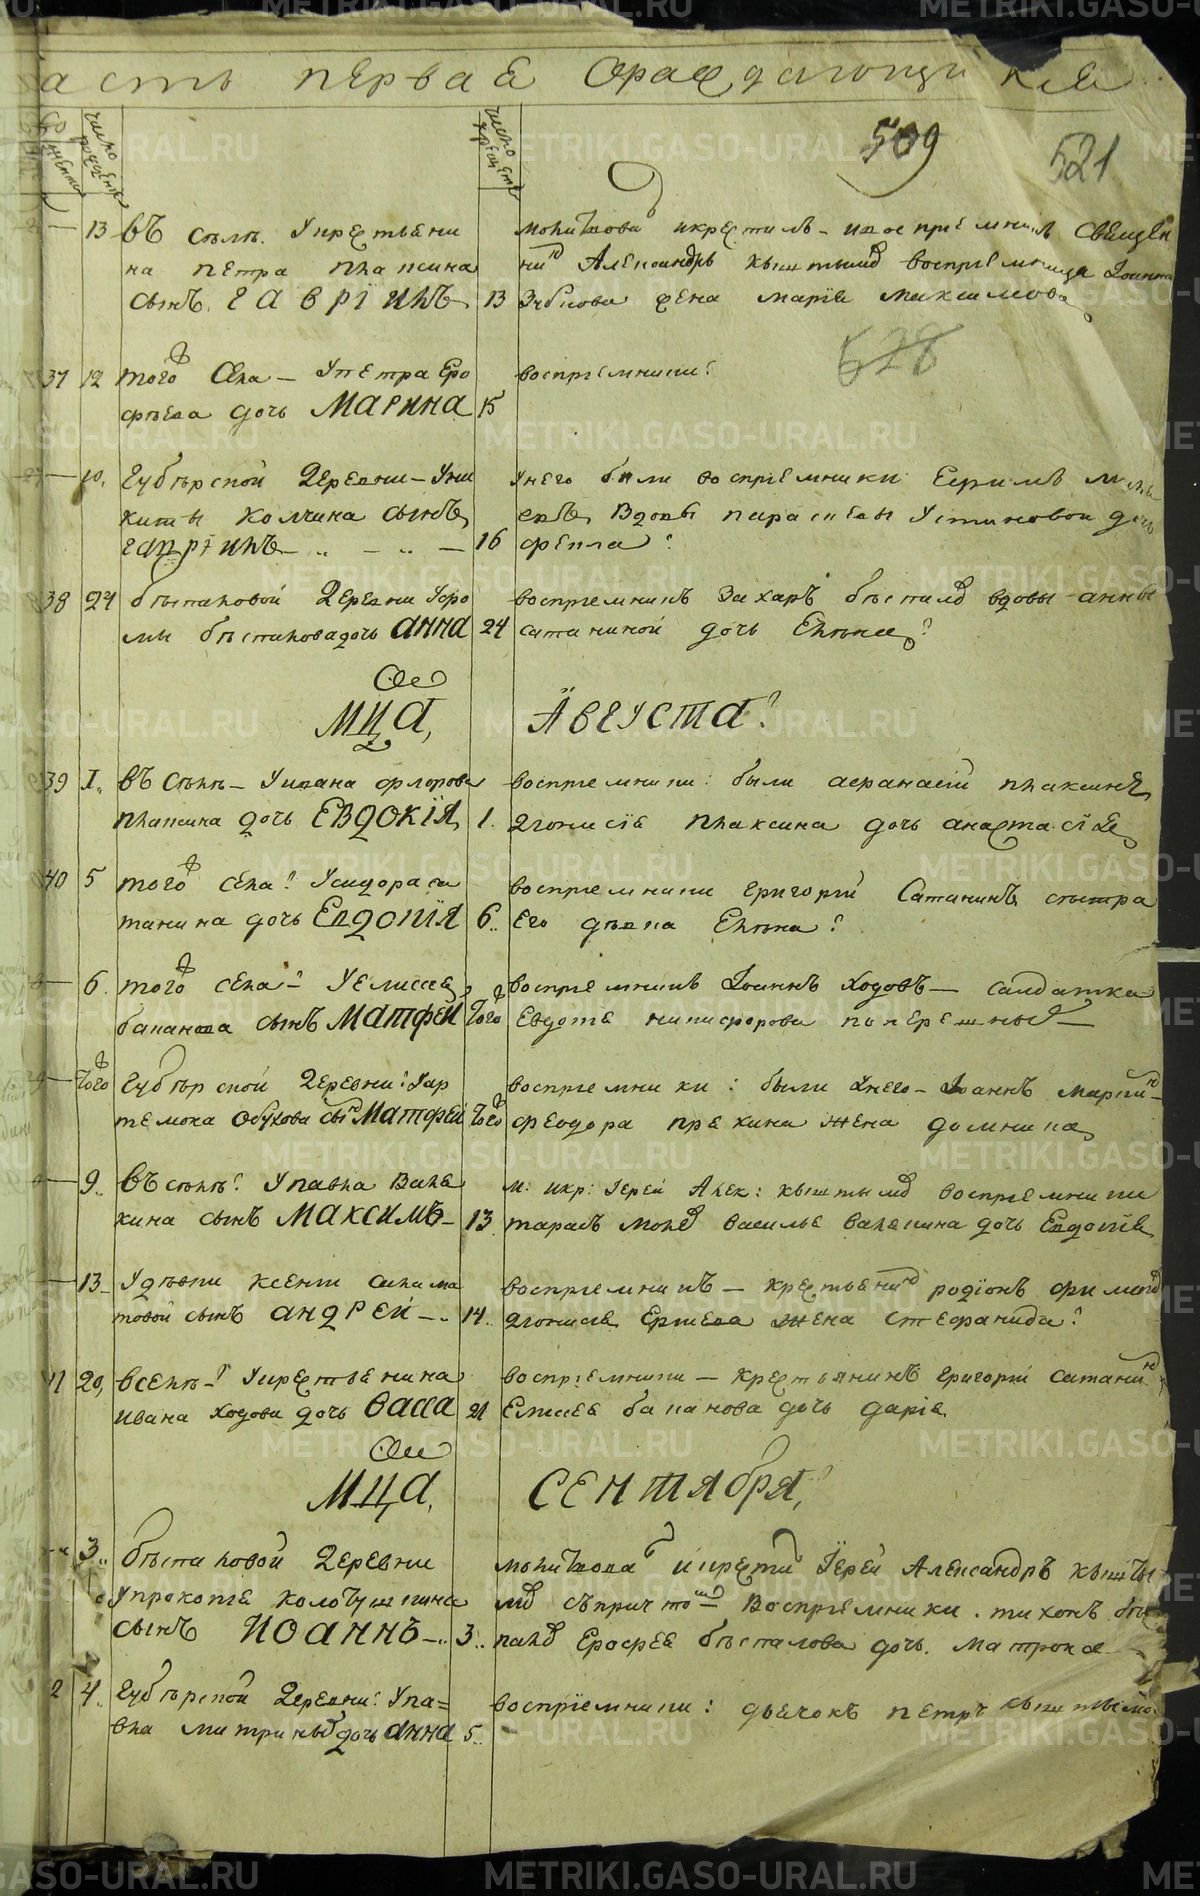 асть первая О раждающихся
число рожденїя
число крещенїя
509
521
628
13 въ селѣ. У крестьяни
на петра плаксина
сынъ. ГАВРІИЛЪ 13
молитвовалъ и крестилъ – и воспрїемникъ священ
никъ Александръ кыштымовъ воспрїемница Іоанна
Зубкова жена марїя максимова
37 12 того села – У петра Еро
фѣева дочь МАРИНА 15
воспрїемники:
10. Губѣрской деревни – У ни
киты колчина сынъ
Гаврїилъ – 16
У него были воспрїемники Ефимъ
вдовы параскевы Устиновой дочь
фекла:
38 24 бѣспаловой деревни У фо
мы бѣспалова дочь АННА 24
воспрїемникъ Захаръ бѣспаловъ вдовы анны
сатаниной дочь Елена:
МЦА, АВГУСТА:
39 1. въ селѣ – У ивана флорова
плаксина дочь ЕВДОКІЯ 1.
воспрїемники: были афанасїй плаксинъ
дїонисїя плаксина дочь анастасїя
40 5 того села: У сидора са
танина дочь ЕВДОКІЯ 6.
воспрїемники григорїй Сатанинъ сестра
Его дѣвка Елена:
6. того села: У елисея
баканова сынъ МАТФЕЙ того
воспрїемникъ Іоаннъ Ходовъ – салдатка
Евдотья никифорова
того Губѣрской деревни: У ар
темона Обухова сынъ МАТФЕЙ того
воспрїемники: были У него – Іоаннъ
феодора жена домника
9. въ селѣ: У павла Вале
кина сынъ МАКСИМЪ – 13
м: и кр: Іерей Алек: кыштымовъ воспрїемники
тарасъ василья валекина дочь Евдокїя
13 – У дѣвки ксенїи
товой сынъ АНДРЕЙ – 14.
воспрїемникъ – крестьянинъ родїонъ
дїонисїя Ершева жена стефанида:
41 20, в селѣ – У крестьянина
ивана Ходова дочь ВАССА 21
воспрїемники – крестьянинъ григорїй сатанинъ
Елисея баканова дочь дарїя.
МЦА, СЕНТЯБРЯ,
3. бѣспаловой деревни
У прокопья колотушкина
сынъ ІОАННЪ – 3.
молитвовалъ и крестилъ Іерей Александръ кышты
мовъ съ причтомъ Воспрїемники. тихонъ бѣс
паловъ Ерофея бѣспалова дочь. Матрона
2 4. Губѣрской деревни: У па=
вла дочь АННА 5.
воспрїемники: дьячокъ петръ кыштымовъ